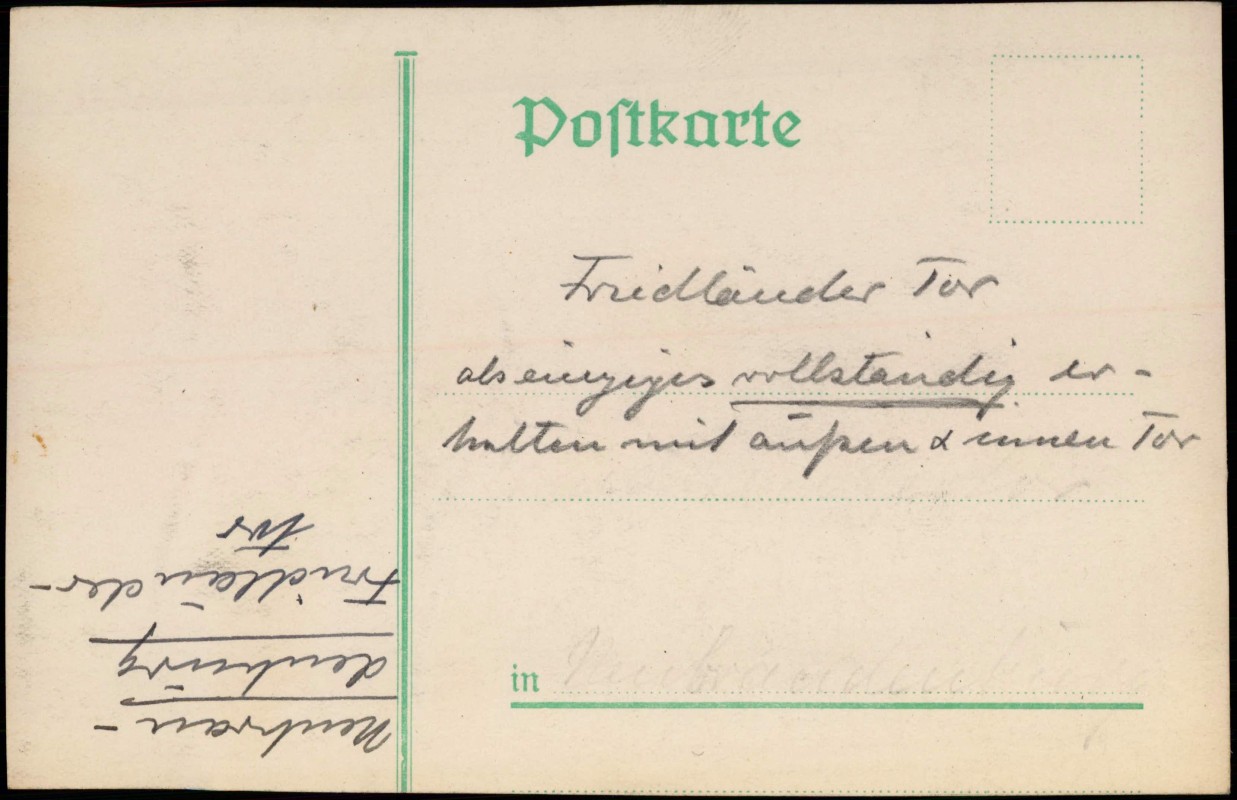 Postkarte
Friedländer Tor
als einziges vollständig er-
halten mit außen & innen Tor
in Neubrandenburg
Neubran-
denburg
Friedländer-
tor